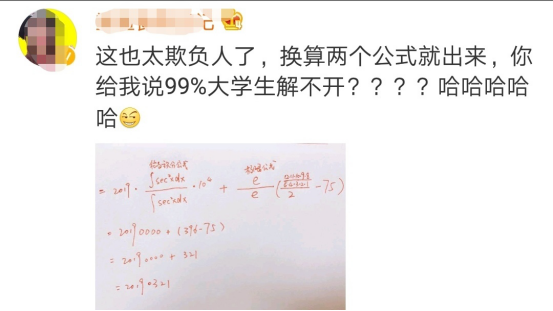 这也太欺负人了，换算两个公式就出来，你
给我说99%大学生解不开？？？？哈哈哈哈
哈
= 2019 · ∫sec²xdx / ∫sec²xdx · 10⁴ + e / e ( / 2 - 75)
= 20190000 + (396-75)
= 20190000 + 321
= 20190321